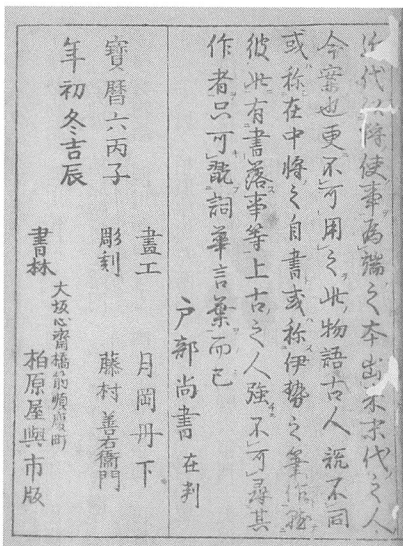 近代以狩使事為端之本出来末代之人
今案也更不可用之此物語古人説不同
或称在中将之自書或称伊勢之筆作就
彼此有書落事等上古之人強不可尋其
作者只可翫詞華言葉而已
戸部尚書 在判
寶暦六丙子
年初冬吉辰
畫工 月岡丹下
彫刻 藤村善右衞門
書林 大坂心齋橋筋順慶町 柏原屋與市版